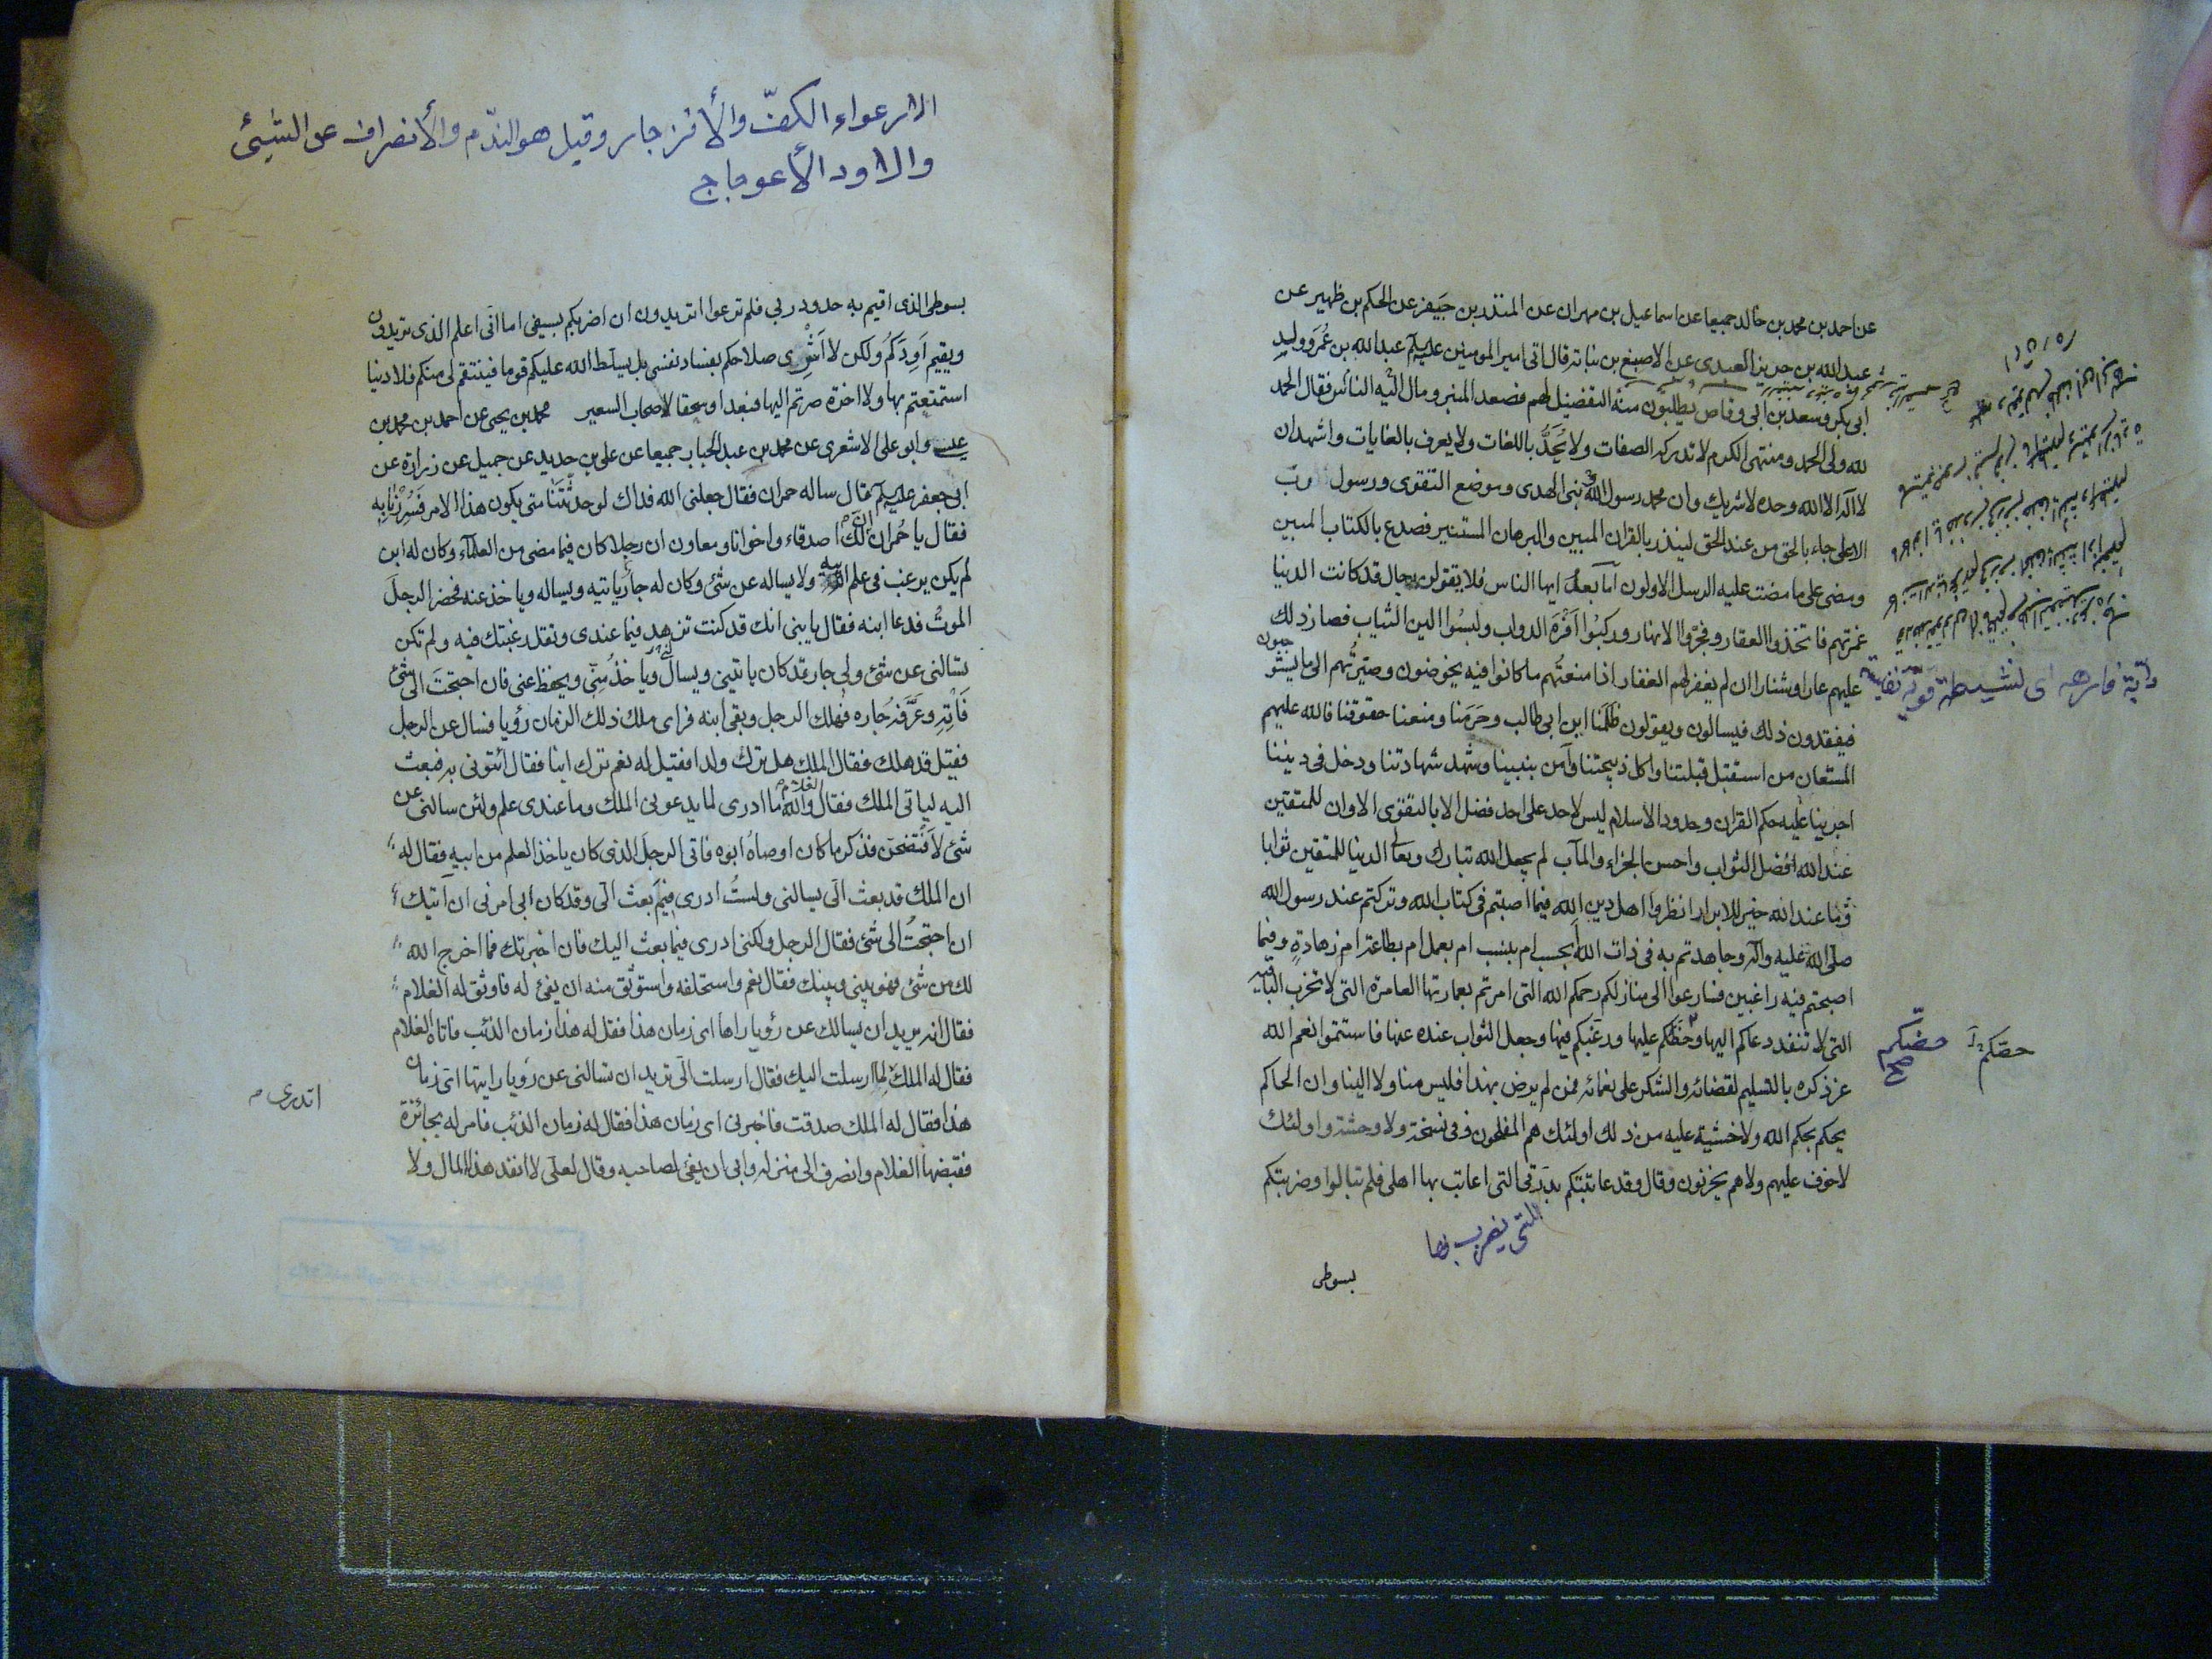 عن احمد بن محمد بن خالد جميعا عن اسماعيل بن مهران عن المنذر بن جيفر عن الحكم بن ظهير عن
عبد الله بن جرير العبدى عن الاصبغ بن نباتة قال اتى امير المومنين عليه السلم عبد الله بن عُمَر وولدِ
ابى بكر وسعد بن ابى وقاص يطلبون منه التفضيل لهم فصعد المنبر ومال اليه الناس فقال الحمد
لله ولى الحمد ومنتهى الكرم لا تدركه الصفات ولا يُحَدُّ باللغات ولا يعرف بالغايات واشهد ان
لا اله الا الله وحده لا شريك وان محمد رسول الله نبى الهدى وموضع التقوى ورسول رب
الاعلى جاء بالحق من عند الحق لينذر بالقران المبين والبرهان المستنير فصدع بالكتاب المبين
ومضى على ما مضت عليه الرسل الاولون اما بعد ايها الناس فلا يقولن رجال قد كانت الدنيا
غمرتهم فاتخذوا العقار وفجّروا الانهار وركبُوا اَفْرَهَ الدواب ولبسُوا الين الثياب فصار ذلك
عليهم عارا وشنارا ان لم يغفر لهم الغفار اذا منعتُهم ما كانوا فيه يخوضون وصيّرتُهم الى ما يستو
جبون
فيفقدون ذلك فيسالون ويقولون ظَلَمَنا ابن ابى طالب وحَرَمَنا ومنعنا حقوقنا فالله عليهم
المستعان من استقبل قبلتنا واكل ذبيحتنا وآمن بنبينا وشهد شهادتنا ودخل فى ديننا
اجرينا عليه حكم القران وحدود الاسلام ليس لاحد على احد فضل الا بالتقوى الا وان للمتقين
عند الله افضل الثواب واحسن الجزاء والمآب لم يجعل الله تبارك وتعالى الدنيا للمتقين ثوابا
وما عند الله خير للابرار انظروا اهل دين الله فيما اصبتم فى كتاب الله وتركتم عند رسول الله
صلى الله عليه وآله وجاهدتم به فى ذات الله أبحسب ام بنسب ام بعمل ام بطاعة ام زهادةٍ وفيما
اصبحتم فيه راغبين فسارعوا الى منازلكم رحمكم الله التى امرتم بعمارتها العامرة التى لا تخرب الباقية
التى لا تنفد دعاكم اليها وحَظَّكم عليها ورغبكم فيها وجعل الثواب عنده عنها فاستتموا نعم الله
عز ذكره بالتسليم لقضائه والشكر على نعمائه فمن لم يرض بهذا فليس منا ولا الينا وان الحاكم
يحكم بحكم الله ولا خشية عليه من ذلك اولئك هم المفلحون وفى نسخة ولا وحشة واولئك
لا خوف عليهم ولا هم يحزنون وقال وقد عاتبتكم بدرتى التى اعاتب بها اهلى فلم تبالوا وضربتكم
التى يضرب بها
بسوطى
دابّة فارهة اى نشيطة قوية نفيسة
حضّكم
صح
حصّكم
الارعواء الكفّ والأنزجار وقيل هو الندّم والأنصراف عن الشيئ
والاود الأعوجاج
بسوطى الذى اقيم به حدود ربى فلم ترعوا اتريدون ان اضربكم بسيفى اما انى اعلم الذى تريدون
ويقيم اَوَدَكُم ولكن لا اَشْرِى صلاحكم بفساد نفسى بل يسلّط الله عليكم قوما فينتقم لى منكم فلا دنيا
استمتعتم بها ولا اخرة صرتم اليها فبعدا وسحقا لاصحاب السعير محمد بن يحيى عن احمد بن محمد بن
عيسى وابو على الاشعرى عن محمد بن عبد الجبار جميعا عن على بن حديد عن جميل عن زرارة عن
ابى جعفر عليه السلم قال ساله حمران فقال جعلنى الله فداك لو حدثتَنا متى يكون هذا الامر فَسُرِرْنا بِه
فقال يا حُمران ان لك اصدقاء واخوانا ومعارن ان رجلا كان فيما مضى من العلماء وكان له ابن
لم يكن يرغب فى علم ابيه ولا يساله عن شئ وكان له جار ياتيه ويساله وياخذ عنه فحضر الرجلَ
الموتُ فدعا ابنه فقال يا بنى انك قد كنت تزهد فيما عندى وتقل رغبتك فيه ولم تكن
تسالنى عن شئ ولى جار قد كان ياتينى ويسالنى وياخذُ مِنّى ويحفظ عنى فان احتجتَ الى شئ
فَاتِهِ وعَرَّفه جاره فهلك الرجل وبقى ابنه فراى ملك ذلك الزمان رؤيا فسال عن الرجل
فقيل قد هلك فقال الملك هل ترك ولدا فقيل له نعم ترك ابنا فقال ائتونى به فبعث
اليه لياتى الملك فقال الغلام والله ما ادرى لما يدعونى الملك وما عندى علم ولئن سالنى عن
شئ لاَفتضحن فذكر ما كان اوصاهُ ابوه فاتى الرجلَ الذى كان ياخذ العلم من ابيه فقال له
ان الملك قد بعث الىّ يسالنى ولستُ ادرى فيمَ بعث الىّ وقد كان ابى امرنى ان آتيك
ان احتجتُ الى شئ فقال الرجل ولكنى ادرى فيما بعث اليك فان اخبرتك فما اخرج الله
لك من شئ فهو بينى وبينك فقال نعم واستحلفه واستوثق منه ان يفئ له فاوثق له الغلام
فقال انه يريد ان يسالك عن رؤيا راها اى زمان هذا فقل له هذا زمان الذئب فاتاه الغلام
فقال له الملك لِما ارسلت اليك فقال ارسلت الىّ تريد ان تسالنى عن رؤيا رايتها اىّ زمان
هذا فقال له الملك صدقت فاخبرنى اى زمان هذا فقال له زمان الذئب فامر له بجائزة
فقبضها الغلام وانصرف الى منزله وابى ان يفئ لصاحبه وقال لعلّى لا انفد هذا المال ولا
اتدرى